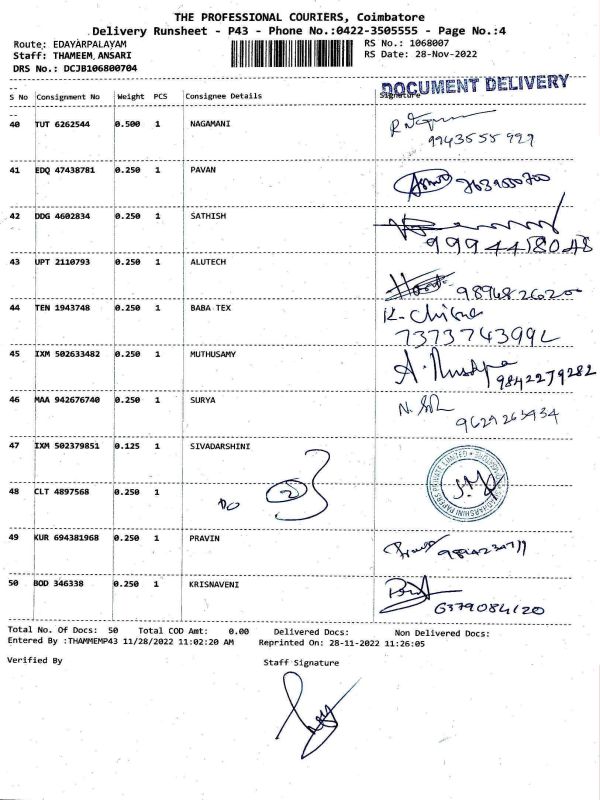 THE PROFESSIONAL COURIERS, Coimbatore
Delivery Runsheet - P43 - Phone No.:0422-3505555 - Page No.:4
Route: EDAYARPALAYAM RS No.: 1068007
Staff: THAMEEM ANSARI RS Date: 28-Nov-2022
DRS No.: DCJB106800704
DOCUMENT DELIVERY
S No Consignment No Weight PCS Consignee Details Signature
40 TUT 6262544 0.500 1 NAGAMANI
9943555927
41 EDQ 47438781 0.250 1 PAVAN
42 DDG 4602834 0.250 1 SATHISH
9994458048
43 UPT 2110793 0.250 1 ALUTECH
9894826200
44 TEN 1943748 0.250 1 BABA TEX
7373743992
45 IXM 502633482 0.250 1 MUTHUSAMY
9842279282
46 MAA 942676740 0.250 1 SURYA
9629263434
47 IXM 502379851 0.125 1 SIVADARSHINI
48 CLT 4897568 0.250 1 Do 2
49 KUR 694381968 0.250 1 PRAVIN
50 BOD 346338 0.250 1 KRISNAVENI
6379084120
Total No. Of Docs: 50 Total COD Amt: 0.00 Delivered Docs: Non Delivered Docs:
Entered By :THAMMEMP43 11/28/2022 11:02:20 AM Reprinted On: 28-11-2022 11:26:05
Verified By Staff Signature